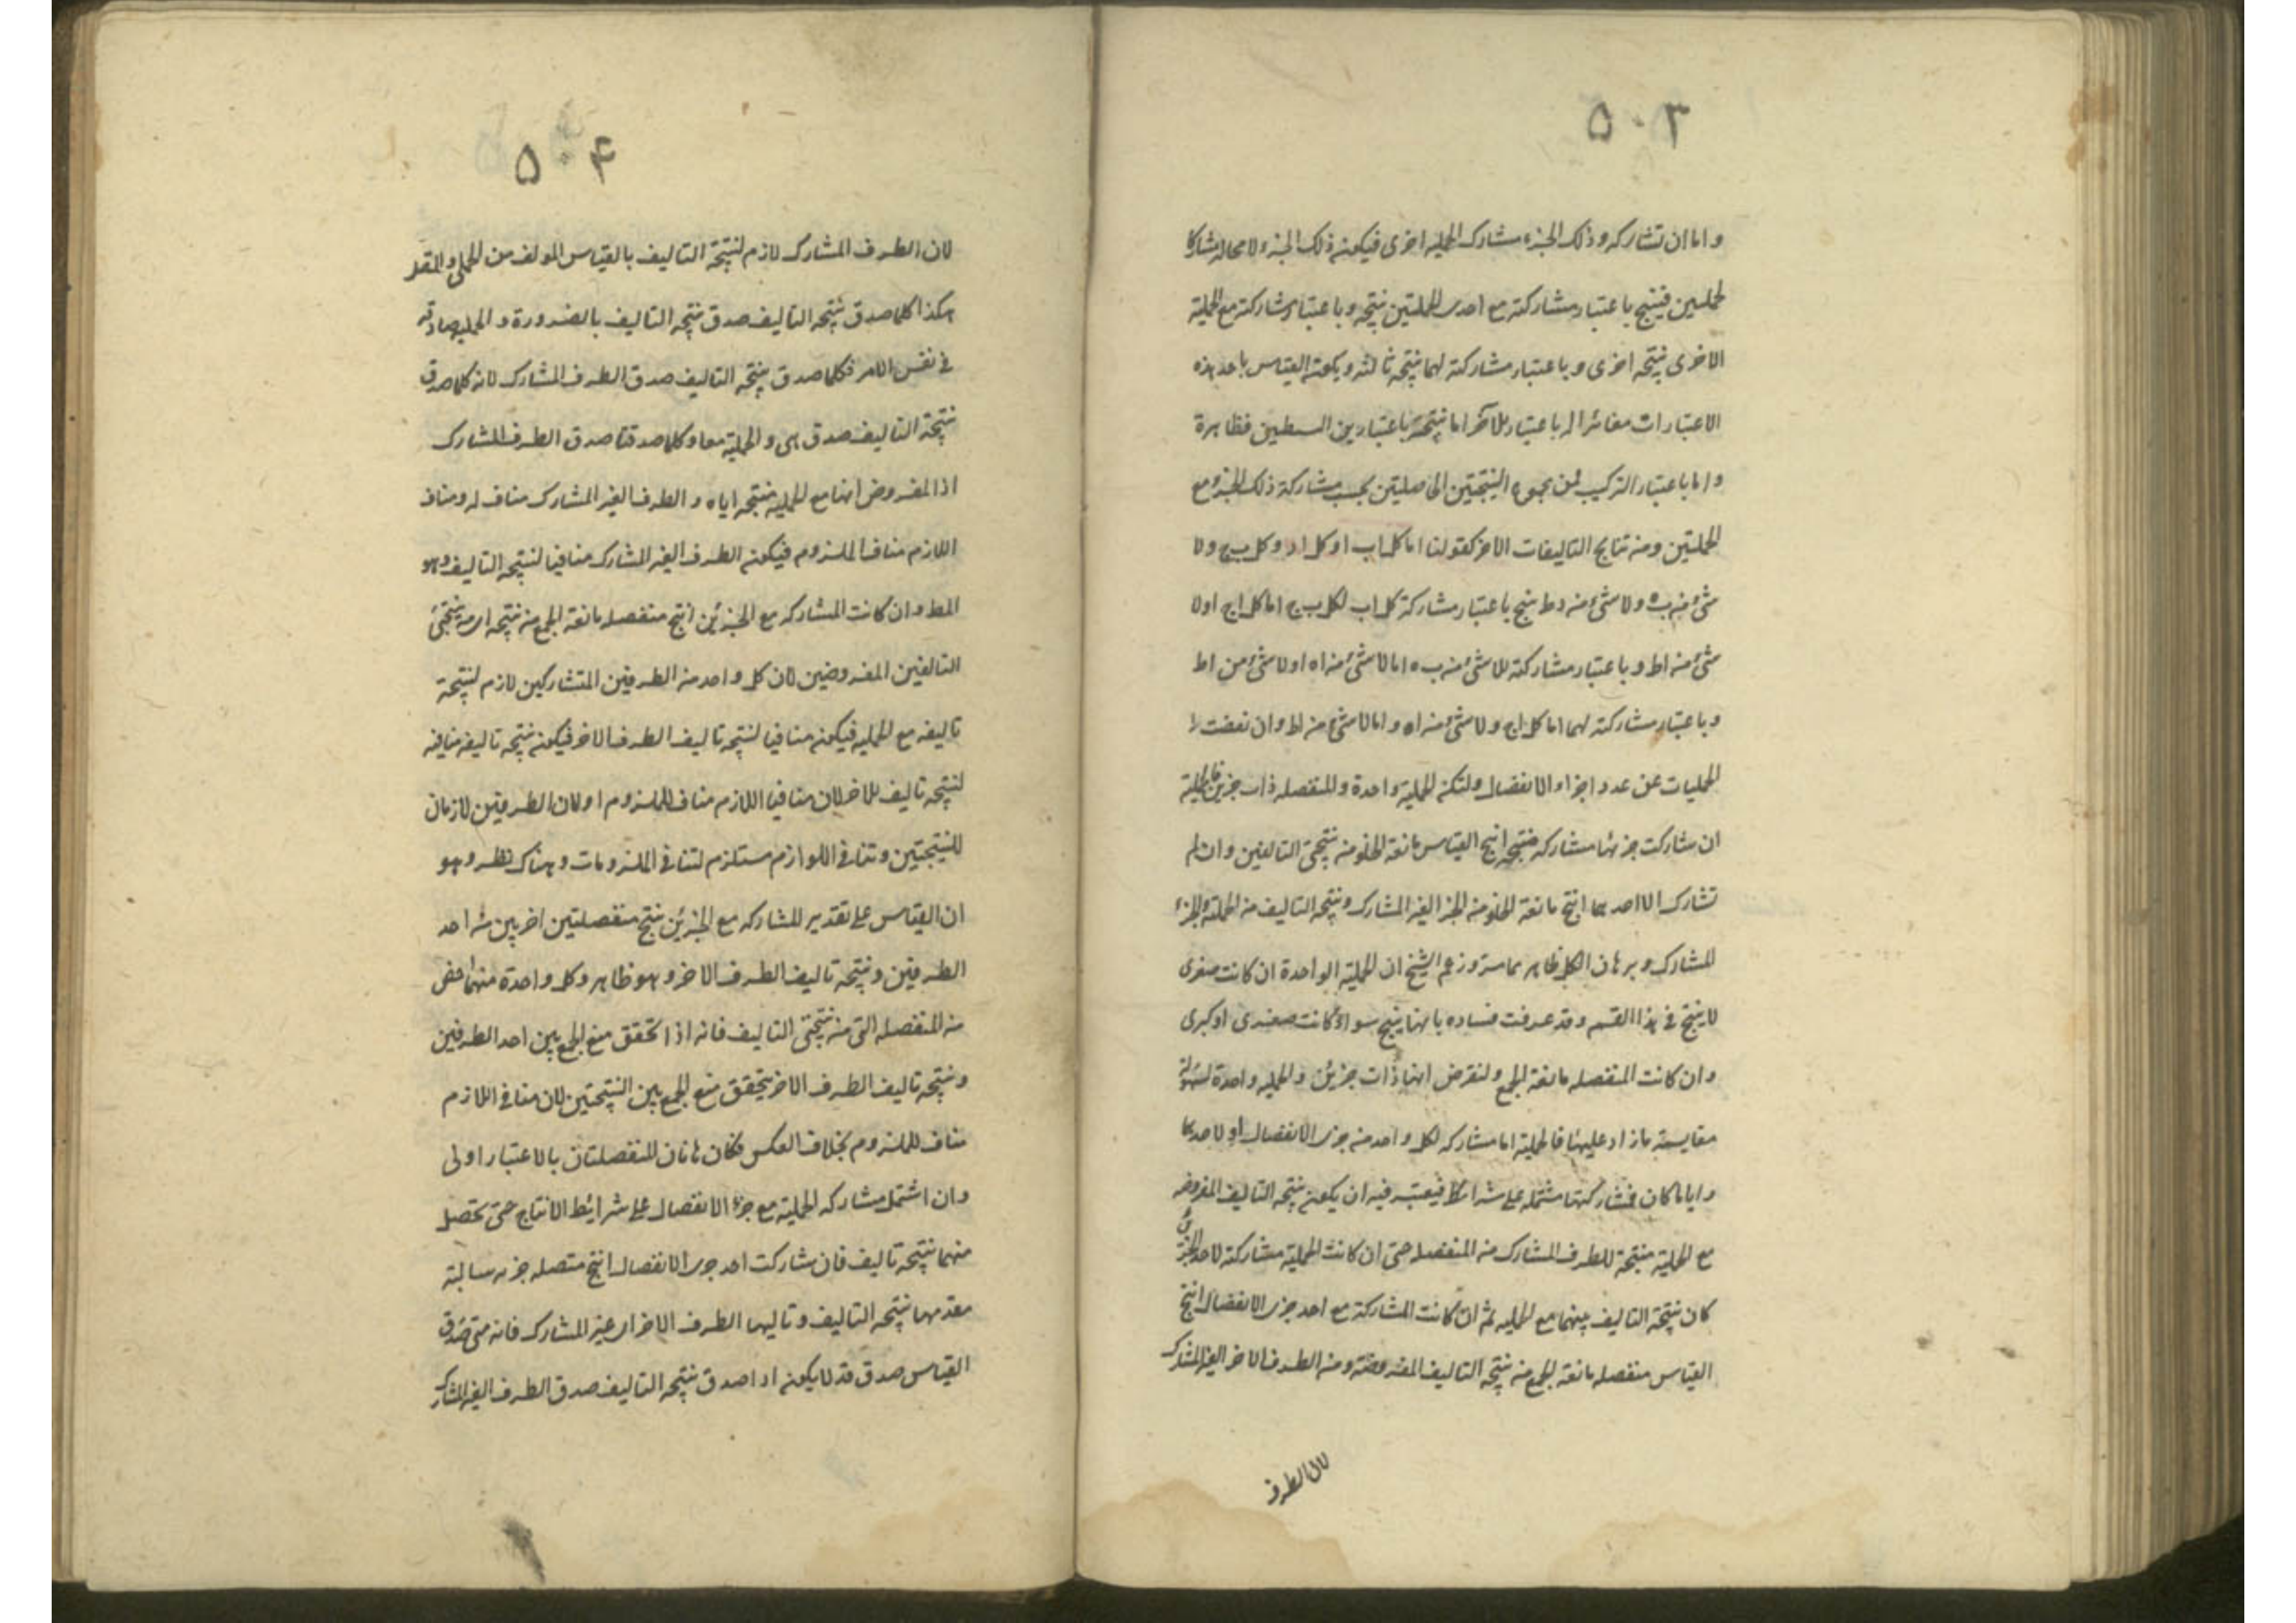 ٥٠٣
واما ان تشاركه وذلك الجزء مشارك لحملية اخرى فيكون ذلك الجزء لا محالة مشاركا
لحمليتين فينتج باعتبار مشاركته مع احدى الحمليتين نتيجة وباعتبار مشاركته مع الحملية
الاخرى نتيجة اخرى وباعتبار مشاركته لهما نتيجة ثالثة ويكون القياس باحد هذه
الاعتبارات مغائرا له باعتبار الآخر اما نتيجته باعتبارين البسطين فظاهرة
واما باعتبار التركيب فمن مجموع النتيجتين الحاصلتين بحسب مشاركة ذلك الجزء مع
الحمليتين ومن نتايج التاليفات الاخر كقولنا اما كل اب او كل اد وكل ب ج ولا
شئ من ب ه ولا شئ من د ط ينتج باعتبار مشاركة كل اب لكل ب ج اما كل اج اولا
شئ من اط وباعتبار مشاركته للا شئ من ب ه اما لا شئ من اه اولا شئ من اط
وباعتبار مشاركته لهما اما كل اج ولا شئ من اه واما لا شئ من اط وان نقصت
الحمليات عن عدد اجزاء الانفصال ولتكن الحملية واحدة والمنفصلة ذات جزئين فالحملية
ان شاركت جزئها مشاركة منتجة انتج القياس مانعة الخلو من نتيجتى التاليفين وان لم
تشارك الا احدهما انتج مانعة الخلو من الجزء الغير المشارك ونتيجة التاليف من الحملية والجزء
المشارك وبرهان الكل ظاهر مما مر وزعم الشيخ ان الحملية الواحدة ان كانت صغرى
لا ينتج في هذا القسم وقد عرفت فساده بانها ينتج سواء كانت صغرى او كبرى
وان كانت المنفصلة مانعة الجمع ولنفرض انها ذات جزئين والحملية واحدة لسهولة
مقايسة ما زاد عليها فالحملية اما مشاركة لكل واحد من جزئى الانفصال او لاحدهما
واياما كان فمشاركتها مشتملة على شرائط فيعتبر فيه ان يكون نتيجة التاليف المفروضة
مع الحملية منتجة للطرف المشارك من المنفصلة حتى ان كانت الحملية مشاركة لاحد الجزئين
كان نتيجة التاليف بينهما مع الحملية ثم ان كانت المشاركة مع احد جزئى الانفصال انتج
القياس منفصلة مانعة الجمع من نتيجة التاليف المفروضة ومن الطرف الاخر الغير المشارك
لان الطرف
٥٠۴
لان الطرف المشارك لازم لنتيجة التاليف بالقياس المولف من الحملى والمقدر
هكذا كلما صدق نتيجة التاليف صدق نتيجة التاليف بالضرورة والحملية صادقة
في نفس الامر فكلما صدق نتيجة التاليف صدق الطرف المشارك لانه كلما صدق
نتيجة التاليف صدق هى والحملية معا وكلما صدقتا صدق الطرف المشارك
اذ المفروض انها مع الحملية منتجة اياه والطرف الغير المشارك مناف له ومناف
اللازم مناف الملزوم فيكون الطرف الغير المشارك منافيا لنتيجة التاليف وهو
المط وان كانت المشاركة مع الجزئين انتج منفصلة مانعة الجمع من نتيجة اى من نتيجتى
التالفين المفروضين لان كل واحد من الطرفين المتشاركين لازم لنتيجة
تاليفه مع الحملية فيكون منافيا لنتيجة تاليف الطرف الاخر فيكون نتيجة تاليفه منافية
لنتيجة تاليف الاخر لان منافيا اللازم مناف للملزوم او لان الطرفين لازمان
للنتيجتين وتنافى اللوازم مستلزم لتنافى الملزومات وهناك نظر وهو
ان القياس على تقدير المشاركة مع الجزئين ينتج منفصلتين اخريين من احد
الطرفين ونتيجة تاليف الطرف الاخر وهو ظاهر وكل واحدة منهما اخص
من المنفصلة التى من نتيجتى التاليف فانه اذا تحقق منع الجمع بين احد الطرفين
ونتيجة تاليف الطرف الاخر يتحقق منع الجمع بين النتيجتين لان منافى اللازم
مناف للملزوم بخلاف العكس فكان هاتان المنفصلتان بالاعتبار اولى
وان اشتمل مشاركة الحملية مع جزء الانفصال على شرائط الانتاج حتى تحصل
منهما نتيجة تاليف فان شاركت احد جزئى الانفصال انتج متصلة جزئية سالبة
مقدمها نتيجة التاليف وتاليها الطرف الاخر اى غير المشارك فانه متى صدق
القياس صدق قد لا يكون اذا صدق نتيجة التاليف صدق الطرف الغير المشارك